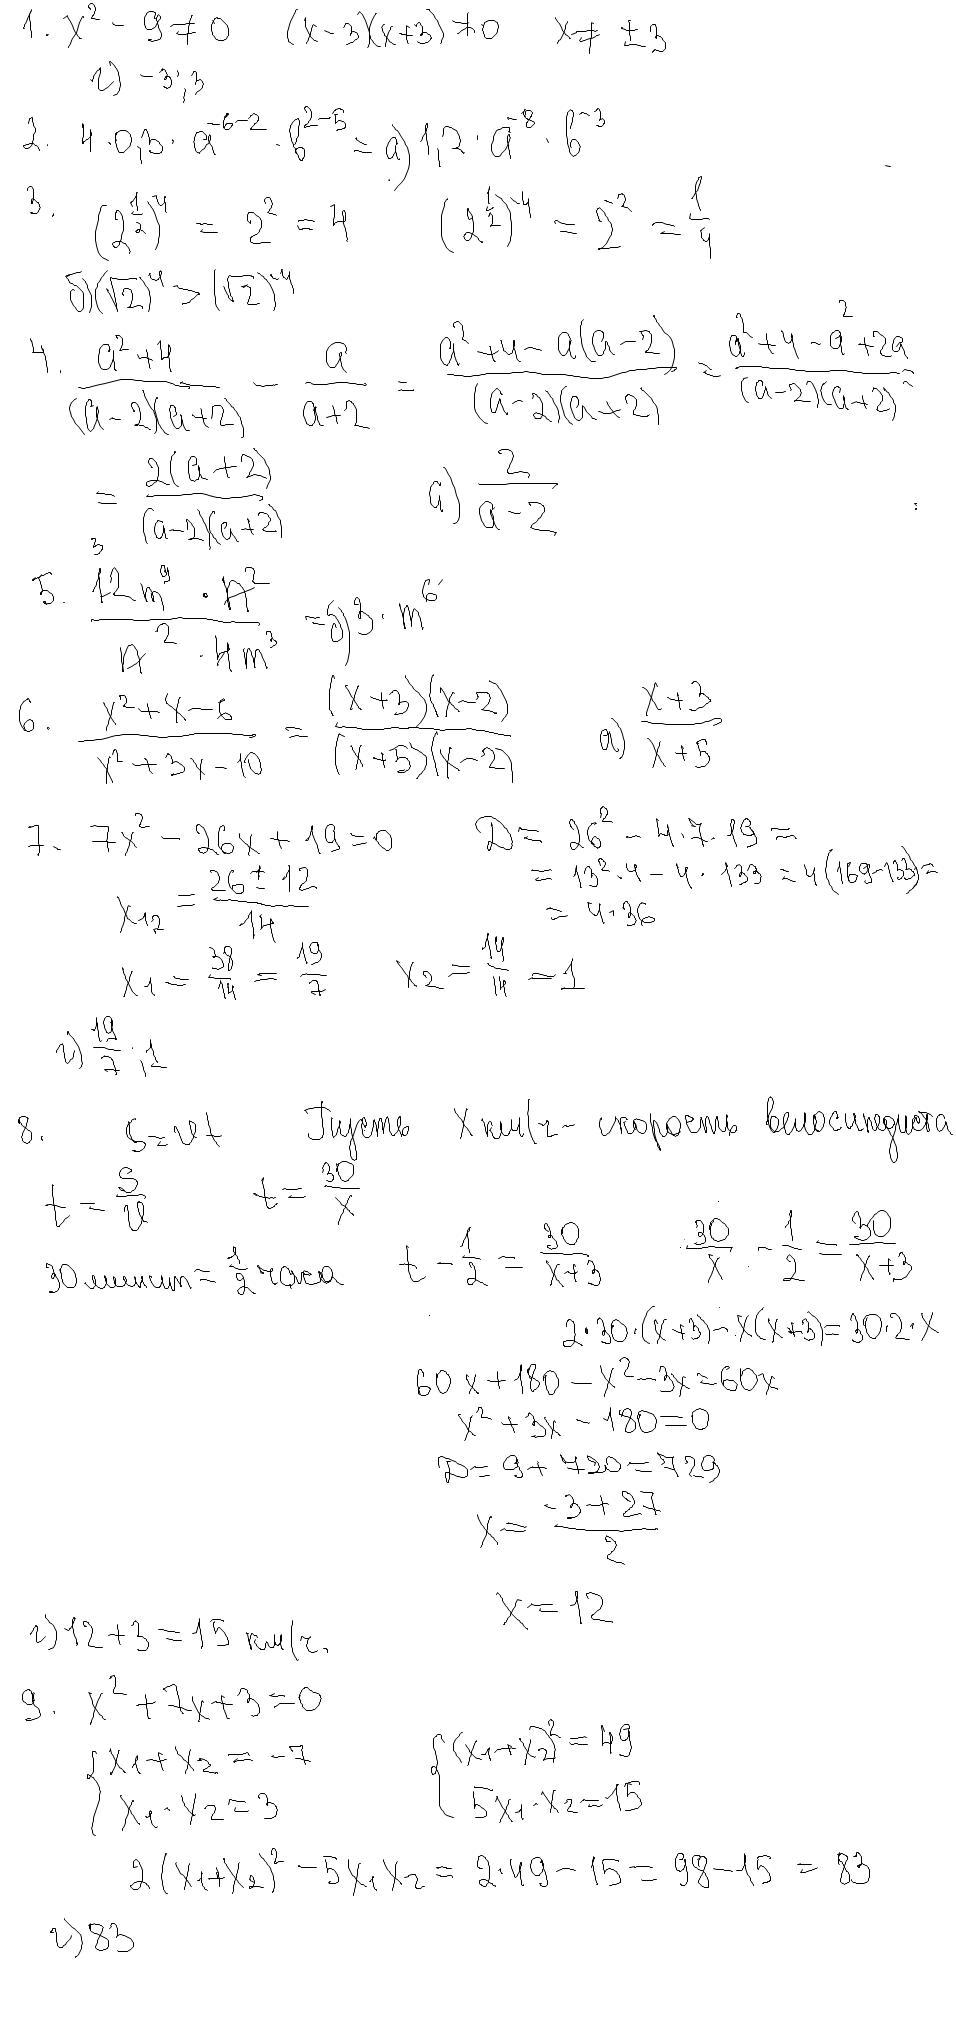 1. x² - 9 ≠ 0 (x-3)(x+3) ≠ 0 x ≠ ±3
г) -3; 3
2. 4·0,3·a⁻⁶⁻²·b²⁻⁵ = а) 1,2·a⁻⁸·b⁻³
3. (2^(1/2))⁴ = 2² = 4 (2^(1/2))⁻⁴ = 2⁻² = 1/4
б) (√2)⁴ > (√2)⁻⁴
4. (a²+4)/((a-2)(a+2)) - a/(a+2) = (a²+4-a(a-2))/((a-2)(a+2)) = (a²+4-a²+2a)/((a-2)(a+2)) =
= 2(a+2)/((a-2)(a+2)) а) 2/(a-2)
5. (12m⁹·n²)/(n²·4m³) = б) 3·m⁶
6. (x²+x-6)/(x²+3x-10) = ((x+3)(x-2))/((x+5)(x-2)) а) (x+3)/(x+5)
7. 7x² - 26x + 19 = 0 D = 26² - 4·7·19 =
= 13²·4 - 4·133 = 4(169-133) =
x₁₂ = (26 ± 12)/14
= 4·36
x₁ = 38/14 = 19/7 x₂ = 14/14 = 1
г) 19/7; 1
8. S = vt Пусть x км/ч - скорость велосипедиста
t = S/v t = 30/x
30 минут = 1/2 часа t - 1/2 = 30/(x+3) 30/x - 1/2 = 30/(x+3)
2·30·(x+3) - x(x+3) = 30·2·x
60x + 180 - x² - 3x = 60x
x² + 3x - 180 = 0
D = 9 + 720 = 729
x = (-3+27)/2
x = 12
г) 12 + 3 = 15 км/ч.
9. x² + 7x + 3 = 0
{ x₁+x₂ = -7 { (x₁+x₂)² = 49
{ x₁·x₂ = 3 { 5x₁·x₂ = 15
2(x₁+x₂)² - 5x₁x₂ = 2·49 - 15 = 98 - 15 = 83
г) 83